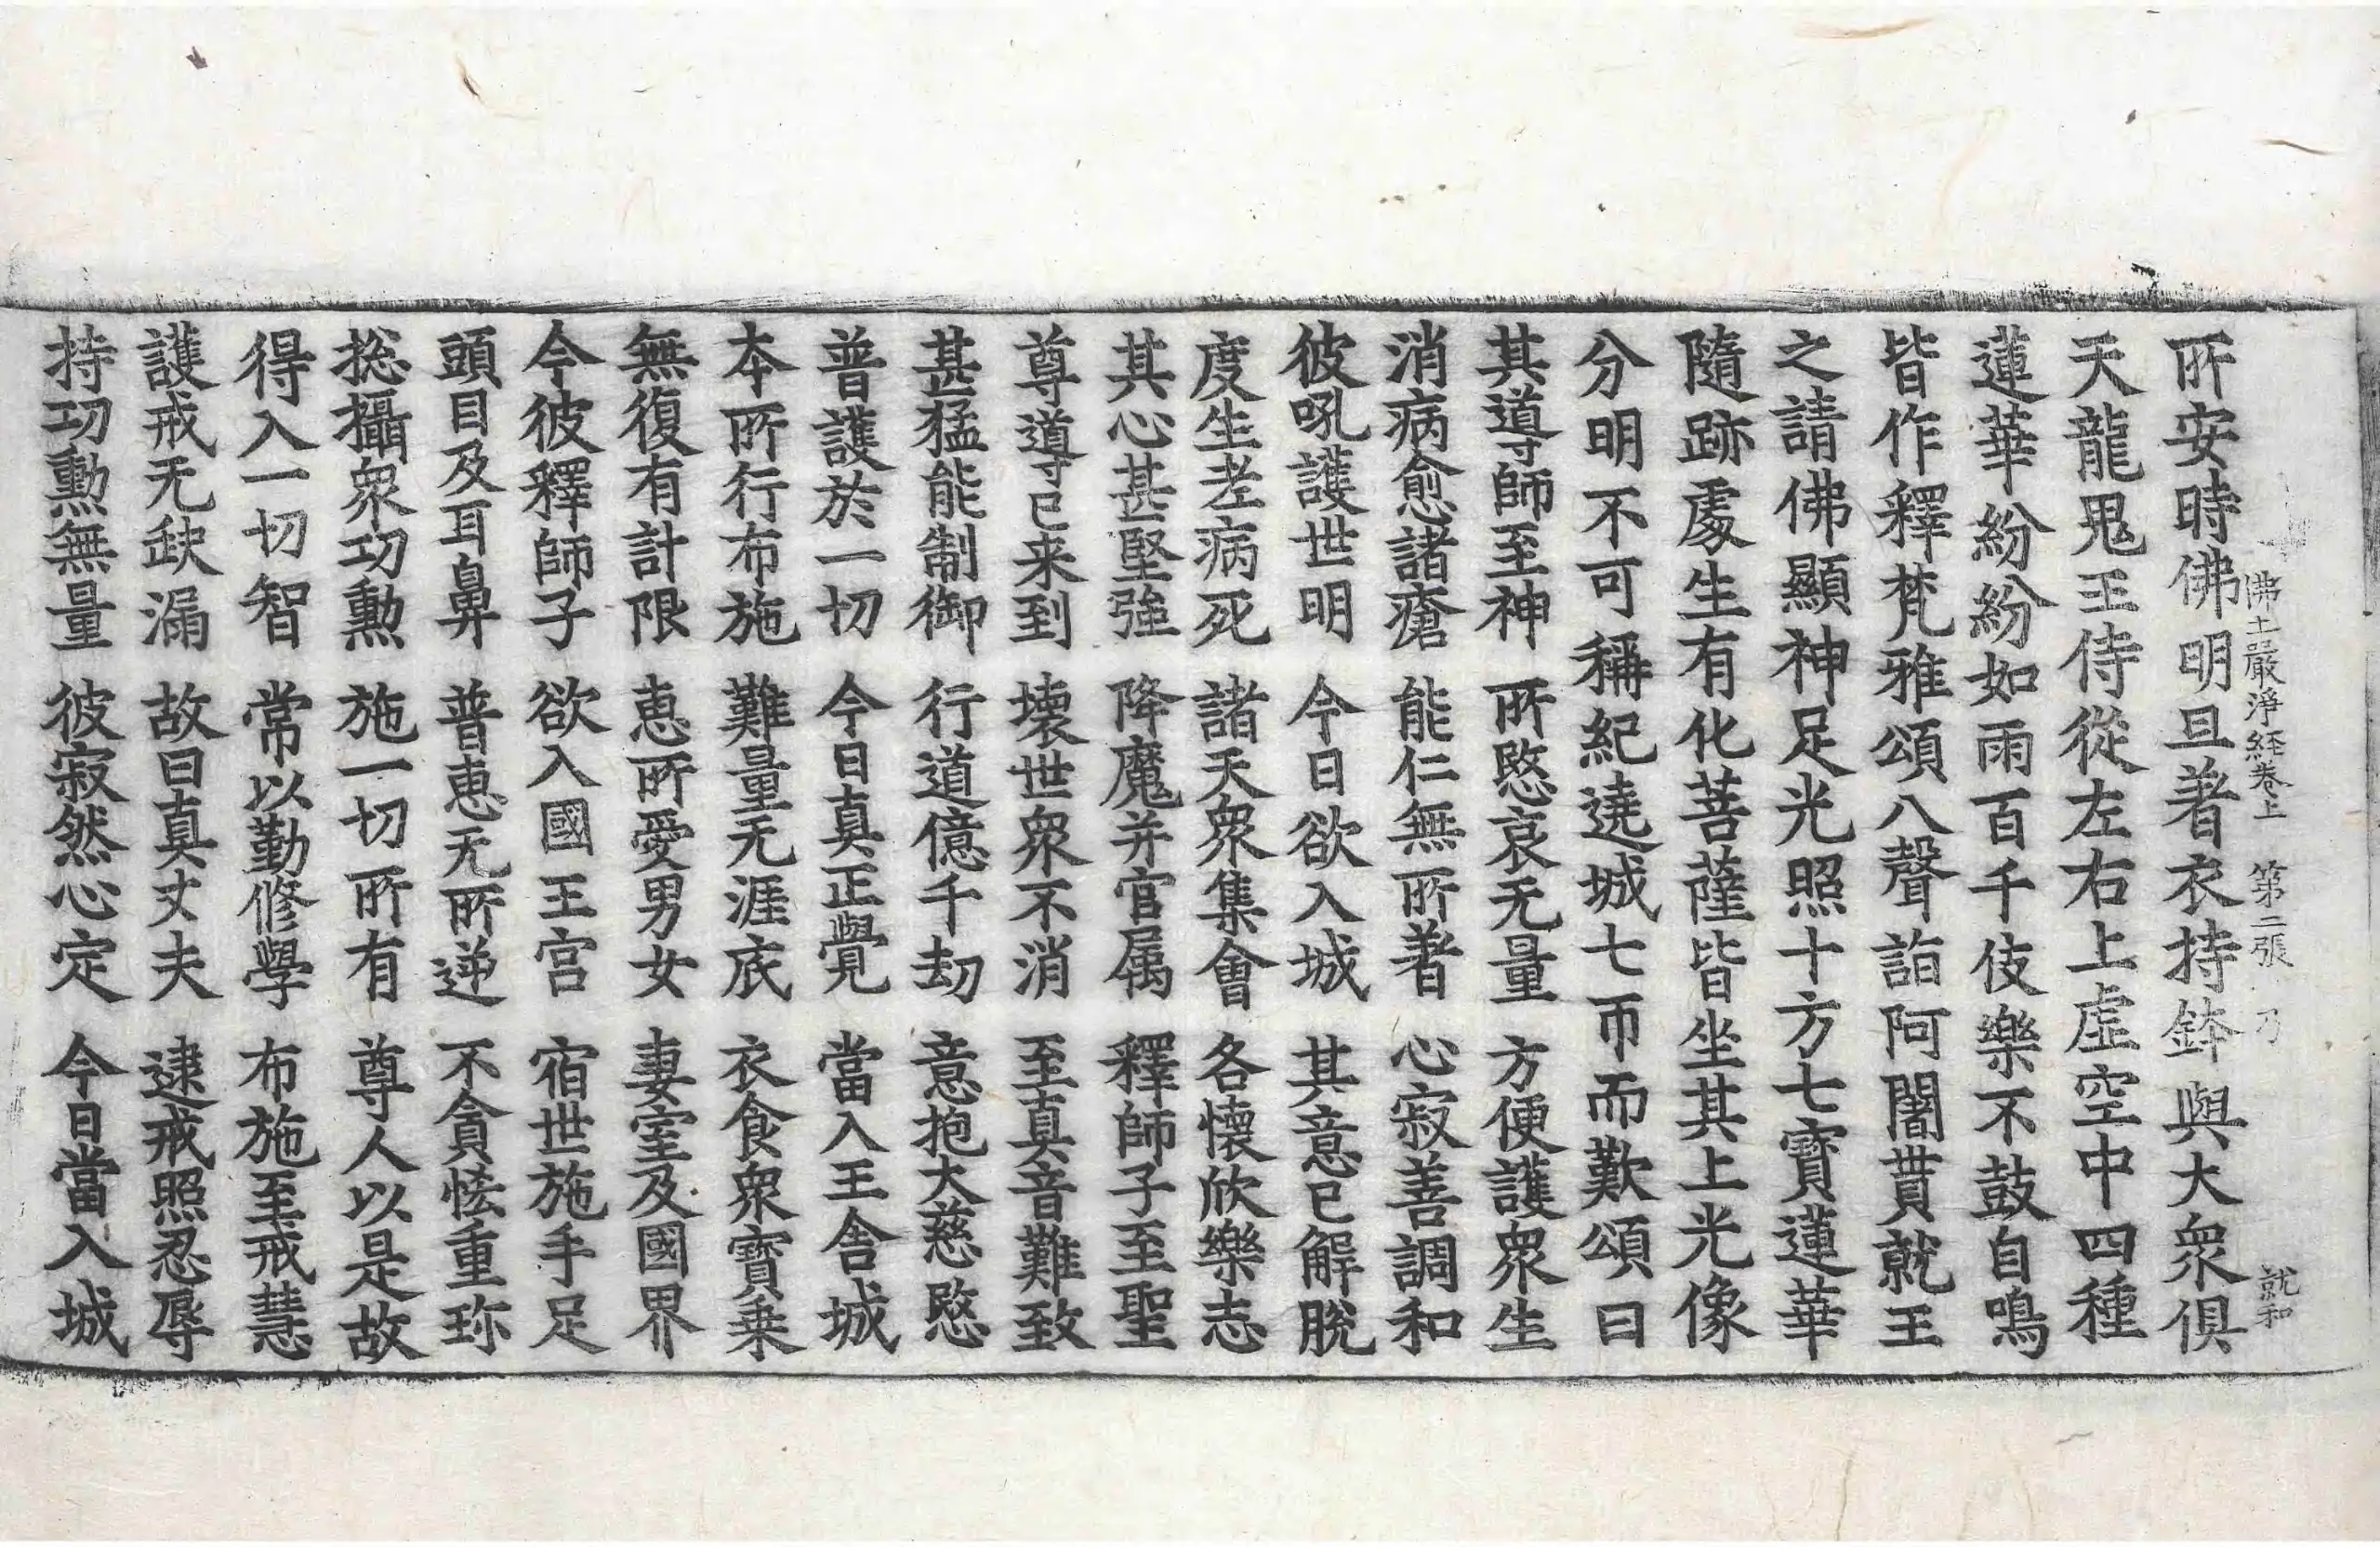 佛土嚴淨経卷上 第二張 乃 就和
所安時佛明旦著衣持鉢與大衆俱
天龍鬼王侍從左右上虛空中四種
蓮華紛紛如雨百千伎樂不鼓自鳴
皆作釋梵雅頌八聲詣阿闍貰就王
之請佛顯神足光照十方七寶蓮華
隨跡處生有化菩薩皆坐其上光像
分明不可稱紀遶城七帀而歎頌曰
其導師至神 所愍哀无量 方便護衆生
消病愈諸瘡 能仁無所著 心寂善調和
彼吼護世明 今日欲入城 其意已解脫
度生老病死 諸天衆集會 各懷欣樂志
其心甚堅強 降魔并官属 釋師子至聖
尊導已来到 壞世衆不消 至真音難致
甚猛能制御 行道億千劫 意抱大慈愍
普護於一切 今日真正覺 當入王舍城
本所行布施 難量无涯底 衣食衆寶乗
無復有計限 恵所愛男女 妻室及國界
今彼釋師子 欲入國王宮 宿世施手足
頭目及耳鼻 普恵无所逆 不貪恡重珎
捴攝衆功勲 施一切所有 尊人以是故
得入一切智 常以勤修學 布施至戒慧
護戒无缺漏 故曰真丈夫 逮戒照忍辱
持功勲無量 彼寂然心定 今日當入城